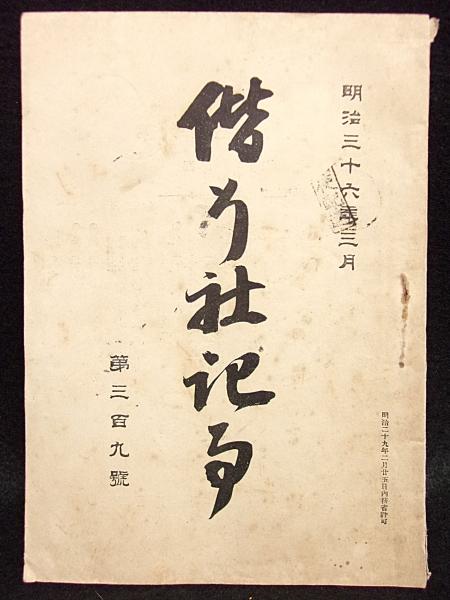 明治三十六年三月
偕行社記事
第三百九號
明治二十九年二月廿五日内務省許可